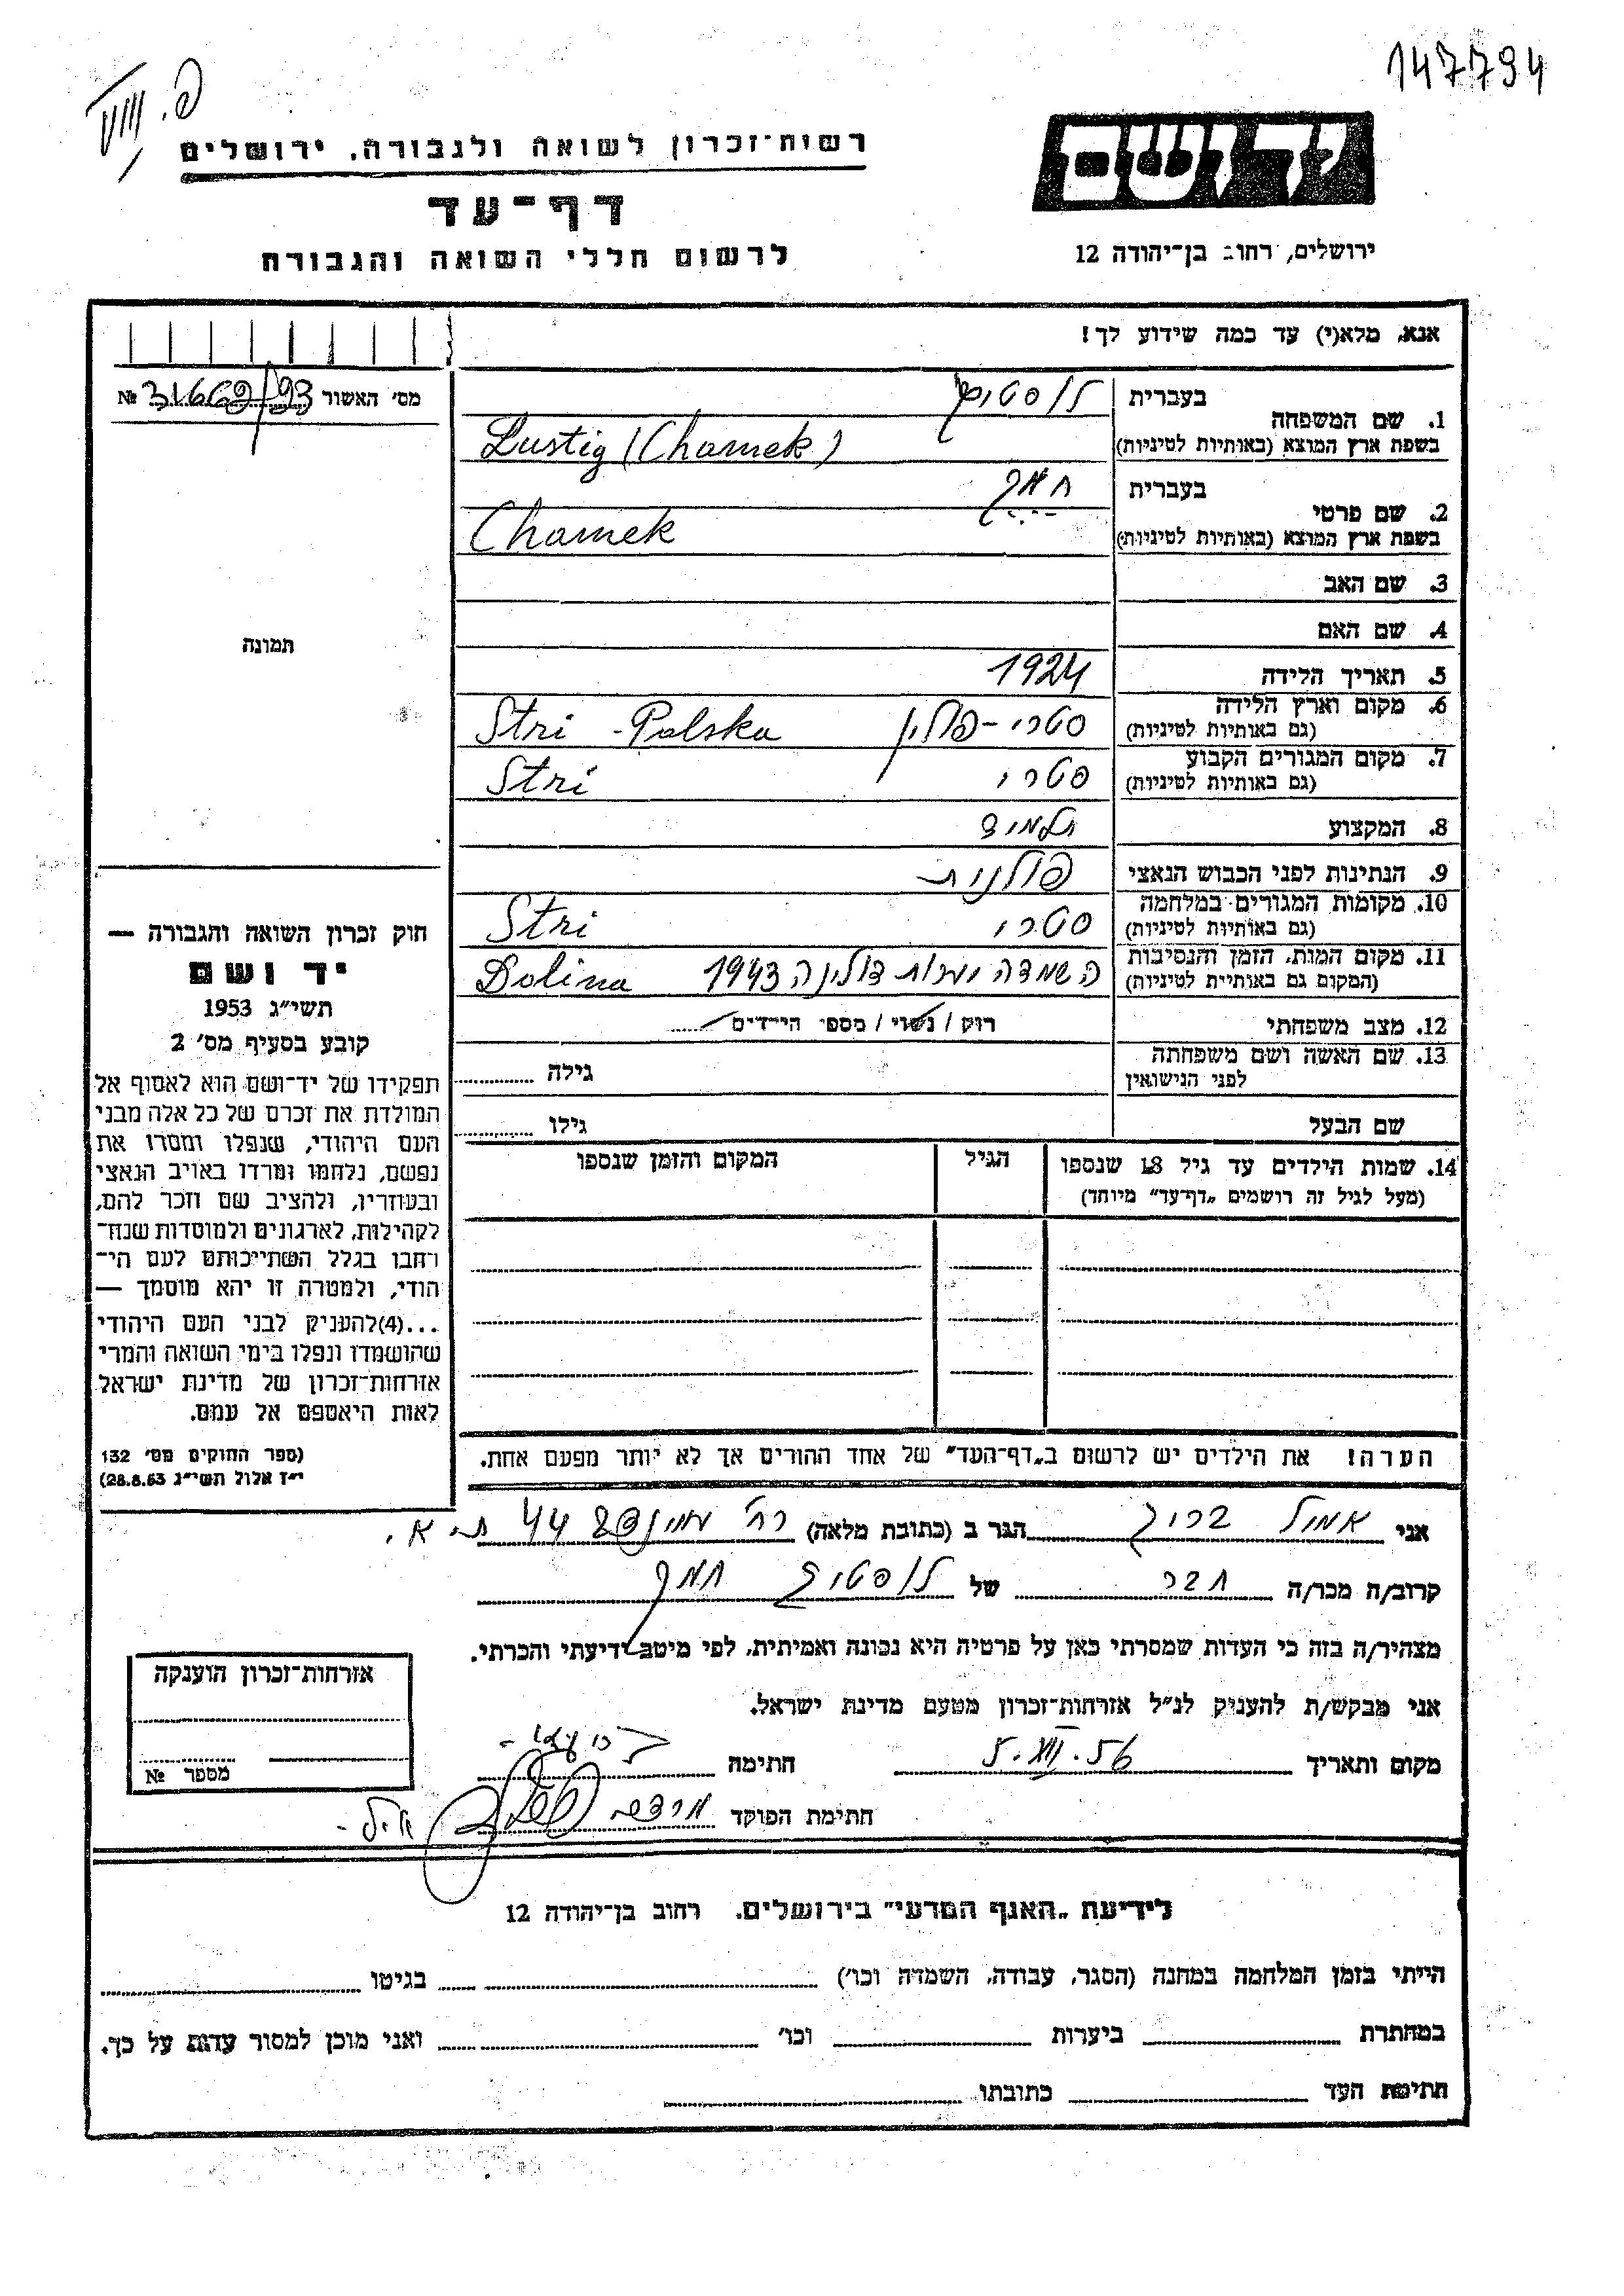 147794
פ. VIII
יד ושם
רשות־זכרון לשואה ולגבורה. ירושלים
דף־עד
לרשום חללי השואה והגבורה
ירושלים, רחוב בן־יהודה 12
אנא, מלא(י) עד כמה שידוע לך!
מס׳ האשור 31669/93 №
תמונה
1. שם המשפחה בעברית לוסטיג
בשפת ארץ המוצא (באותיות לטיניות) Lustig (Chamek)
2. שם פרטי בעברית חמק
בשפת ארץ המוצא (באותיות לטיניות) Chamek
3. שם האב
4. שם האם
5. תאריך הלידה 1924
6. מקום וארץ הלידה (גם באותיות לטיניות) סטרי - פולין Stri - Polska
7. מקום המגורים הקבוע (גם באותיות לטיניות) סטרי Stri
8. המקצוע תלמיד
9. הנתינות לפני הכבוש הנאצי פולנית
10. מקומות המגורים במלחמה (גם באותיות לטיניות) סטרי Stri
11. מקום המות, הזמן והנסיבות (המקום גם באותיית לטיניות) השמדה דולינה 1943 Dolina
12. מצב משפחתי רווק / נשוי / מספר הילדים
13. שם האשה ושם משפחתה לפני הנישואין גילה
שם הבעל גילו
14. שמות הילדים עד גיל 18 שנספו (מעל לגיל זה רושמים „דף־עד" מיוחד) הגיל המקום והזמן שנספו
הערה! את הילדים יש לרשום ב„דף־העד" של אחד ההורים אך לא יותר מפעם אחת.
חוק זכרון השואה והגבורה —
יד ושם
תשי״ג 1953
קובע בסעיף מס׳ 2
תפקידו של יד־ושם הוא לאסוף אל
המולדת את זכרם של כל אלה מבני
העם היהודי, שנפלו ומסרו את
נפשם, נלחמו ומרדו באויב הנאצי
ובעוזריו, ולהציב שם וזכר להם,
לקהילות, לארגונים ולמוסדות שנח־
רחבו בגלל השתייכותם לעם הי־
הודי, ולמטרה זו יהא מוסמך —
...(4)להעניק לבני העם היהודי
שהושמדו ונפלו בימי השואה והמרי
אזרחות־זכרון של מדינת ישראל
לאות היאספם אל עמם.
(ספר החוקים מס׳ 132
י״ז אלול תשי״ג 28.8.53)
אני אמיל ברוך הגר ב (כתובת מלאה) רח׳ 44 ת.א.
קרוב/ה מכר/ה חבר של לוסטיג חמק
מצהיר/ה בזה כי העדות שמסרתי כאן על פרטיה היא נכונה ואמיתית, לפי מיטב ידיעתי והכרתי.
אני מבקש/ת להעניק לנ״ל אזרחות־זכרון מטעם מדינת ישראל.
מקום ותאריך 5.XII.56 חתימה
חתימת הפוקד
אזרחות־זכרון הוענקה
מספר №
לידיעת „האגף המדעי" בירושלים. רחוב בן־יהודה 12
הייתי בזמן המלחמה במחנה (הסגר, עבודה, השמדה וכו׳) בגיטו
במחתרת ביערות וכו׳ ואני מוכן למסור עדות על כך.
חתימת העד כתובתו